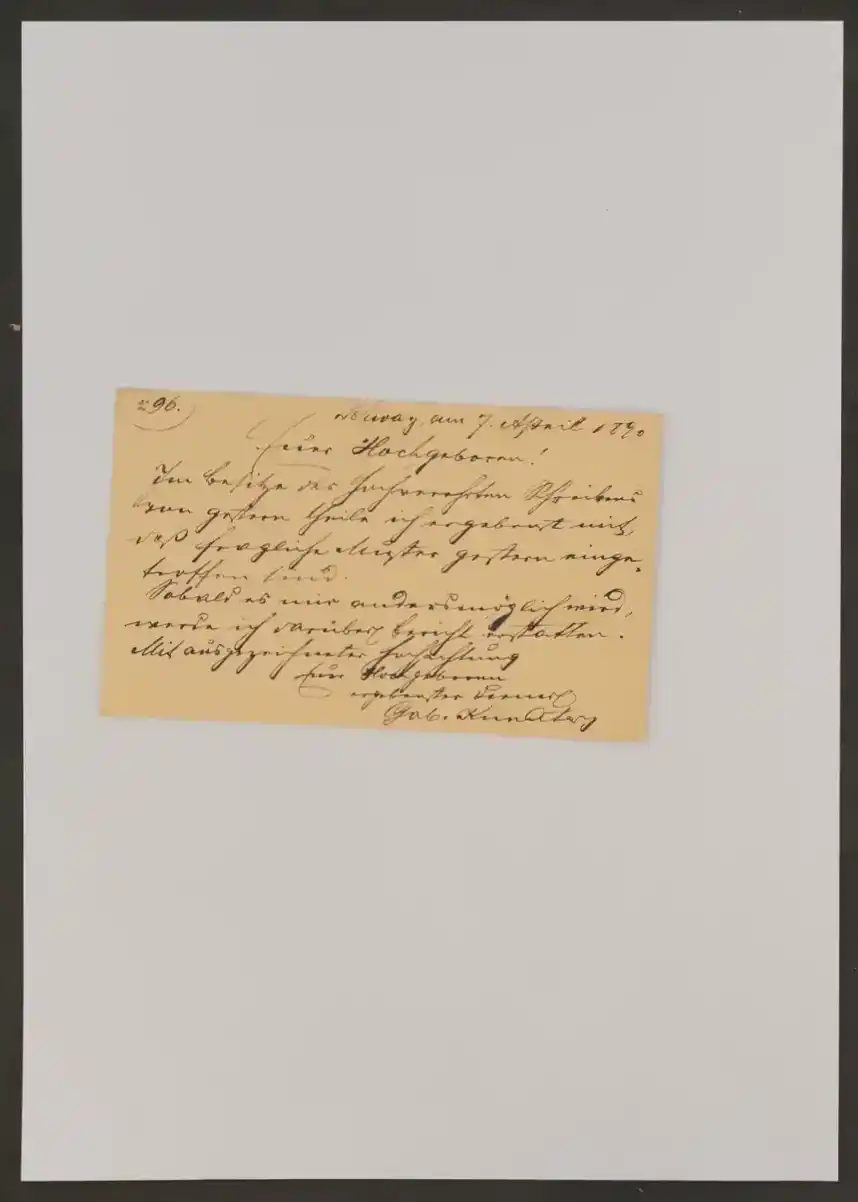 296.
am 7. April 1890
Euer Hochgeboren!
Im Besitze des hochverehrten Schreibens
von gestern theile ich ergebenst mit,
daß fragliche Muster gestern einge-
troffen sind.
Sobald es mir anders möglich wird,
werde ich darüber Bericht erstatten.
Mit ausgezeichneter Hochachtung
Euer Hochgeboren
ergebenster Diener
Gab.